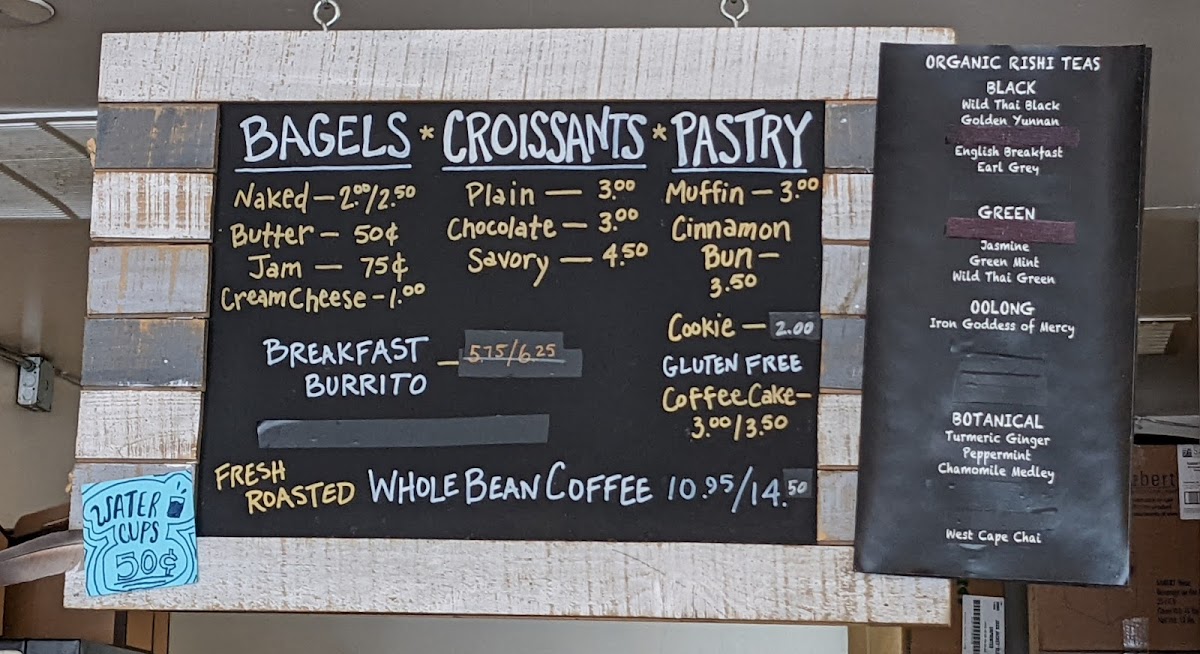 BAGELS * CROISSANTS * PASTRY
Naked — 2.00/2.50
Butter — 50¢
Jam — 75¢
Cream Cheese - 1.00
Plain — 3.00
Chocolate — 3.00
Savory — 4.50
Muffin — 3.00
Cinnamon
Bun —
3.50
Cookie — 2.00
GLUTEN FREE
Coffee Cake —
3.00/3.50
BREAKFAST
BURRITO
— 5.75/6.25
FRESH
ROASTED
WHOLE BEAN COFFEE 10.95/14.50
WATER
CUPS
50¢
ORGANIC RISHI TEAS
BLACK
Wild Thai Black
Golden Yunnan
English Breakfast
Earl Grey
GREEN
Jasmine
Green Mint
Wild Thai Green
OOLONG
Iron Goddess of Mercy
BOTANICAL
Turmeric Ginger
Peppermint
Chamomile Medley
West Cape Chai